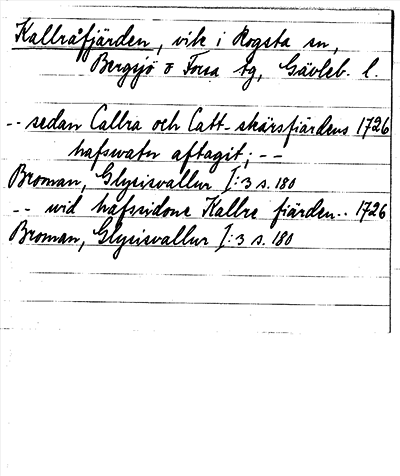 Kallråfjärden, vik i Rogsta sn,
Bergsjö o Forsa tg, Gävleb. l.
-- sedan Callra och Catt-skärsfiärdens 1726
hafswatn aftagit; --
Broman, Glysisvallur I:3 s. 180
-- wid hafssidone Kallre fiärden.. 1726
Broman, Glysisvallur I:3 s. 180